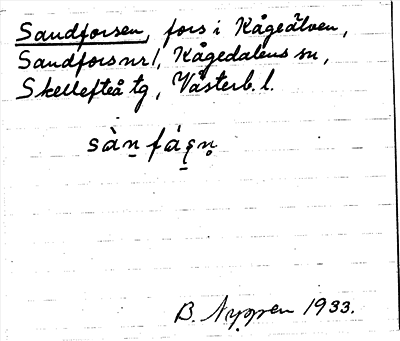 Sandforsen, fors i Kågeälven,
Sandfors nr 1, Kågedalens sn,
Skellefteå tg, Västerb. l.
sàn̲ fàs̨n̥
B. Nygren 1933.